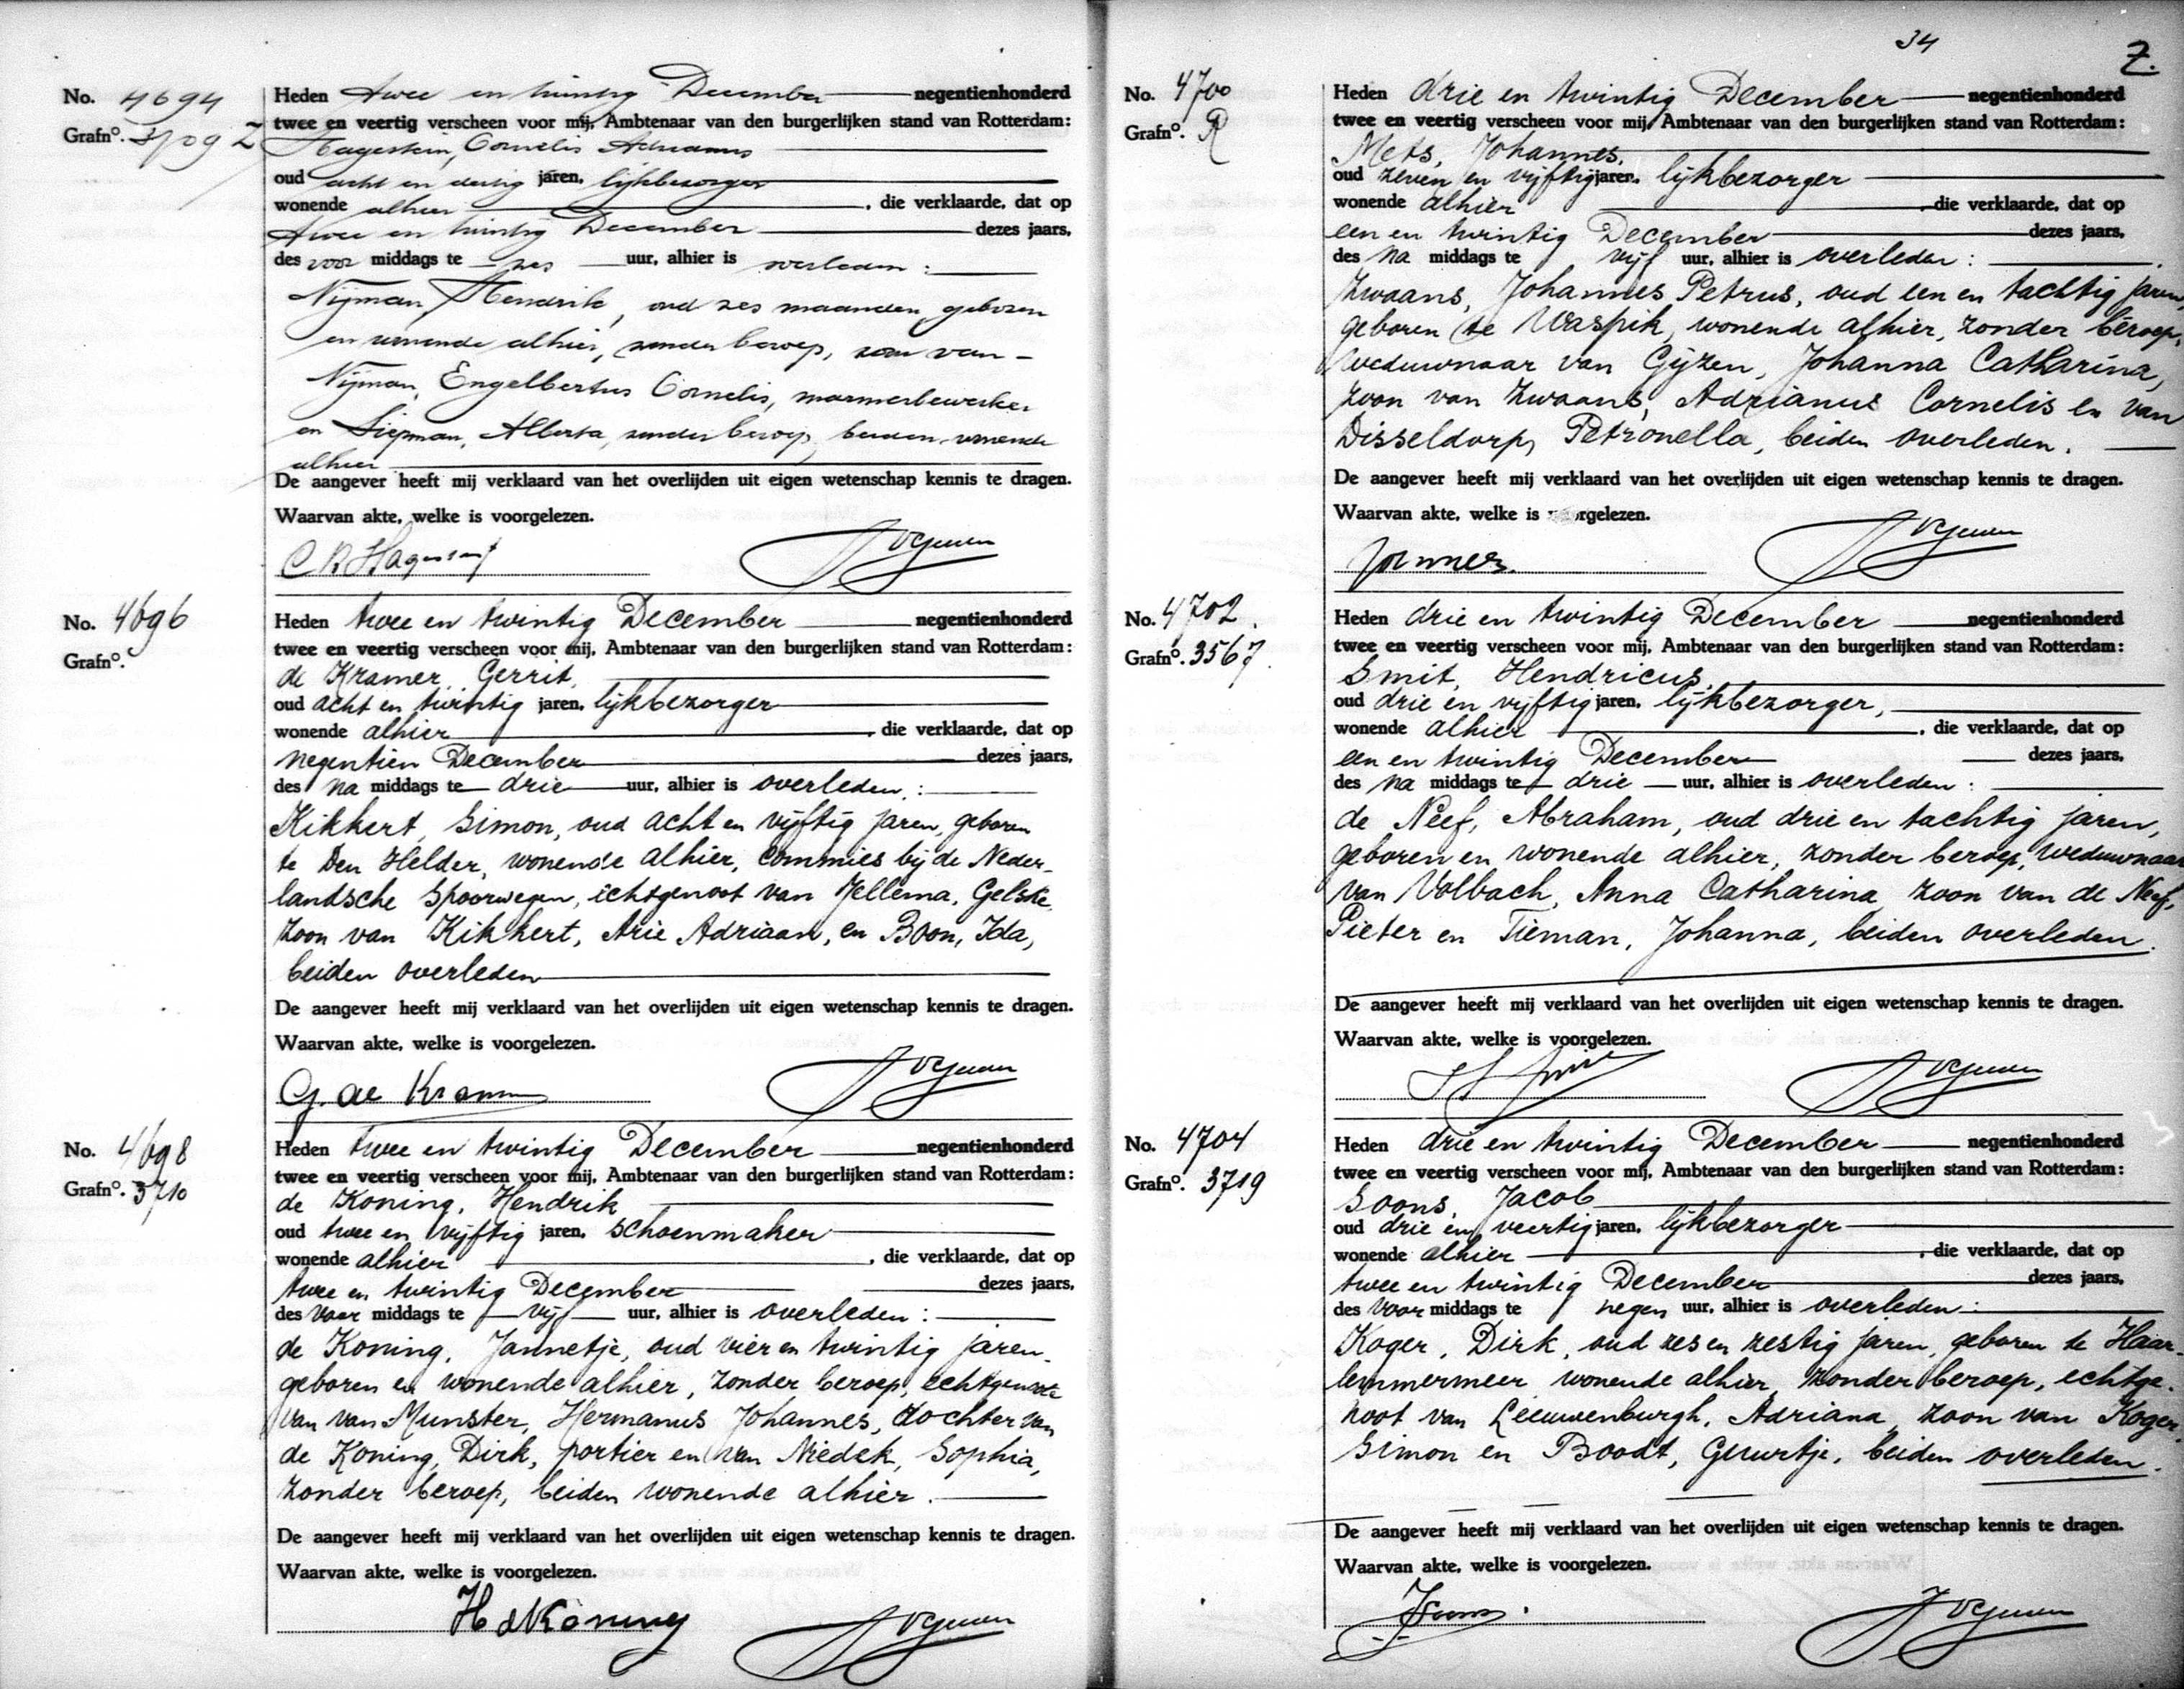 No. 4694
Grafnº. 3709 Z
Heden twee en twintig December negentienhonderd
twee en veertig verscheen voor mij, Ambtenaar van den burgerlijken stand van Rotterdam:
Hagestein, Cornelis Adrianus
oud acht en dertig jaren, lijkbezorger
wonende alhier, die verklaarde, dat op
twee en twintig December dezes jaars,
des voor middags te zes uur, alhier is overleden:
Nijman, Hendrik, oud zes maanden, geboren
en wonende alhier, zonder beroep, zoon van
Nijman, Engelbertus Cornelis, marmerbewerker
en Siepman, Alberta, zonder beroep, beiden wonende
alhier
De aangever heeft mij verklaard van het overlijden uit eigen wetenschap kennis te dragen.
Waarvan akte, welke is voorgelezen.
No. 4696
Grafnº.
Heden twee en twintig December negentienhonderd
twee en veertig verscheen voor mij, Ambtenaar van den burgerlijken stand van Rotterdam:
de Kramer, Gerrit,
oud acht en twintig jaren, lijkbezorger
wonende alhier, die verklaarde, dat op
negentien December dezes jaars,
des na middags te drie uur, alhier is overleden:
Kikkert, Simon, oud acht en vijftig jaren, geboren
te Den Helder, wonende alhier, commies bij de Neder-
landsche Spoorwegen, echtgenoot van Jellema, Gelske,
zoon van Kikkert, Arie Adriaan, en Boon, Ida,
beiden overleden
De aangever heeft mij verklaard van het overlijden uit eigen wetenschap kennis te dragen.
Waarvan akte, welke is voorgelezen.
G. de Kramer
No. 4698
Grafnº. 3710
Heden twee en twintig December negentienhonderd
twee en veertig verscheen voor mij, Ambtenaar van den burgerlijken stand van Rotterdam:
de Koning, Hendrik
oud twee en vijftig jaren, schoenmaker
wonende alhier, die verklaarde, dat op
twee en twintig December dezes jaars,
des voor middags te vijf uur, alhier is overleden:
de Koning, Jannetje, oud vier en twintig jaren,
geboren en wonende alhier, zonder beroep, echtgenoote
van van Munster, Hermanus Johannes, dochter van
de Koning, Dirk, portier en van Niedek, Sophia,
zonder beroep, beiden wonende alhier.
De aangever heeft mij verklaard van het overlijden uit eigen wetenschap kennis te dragen.
Waarvan akte, welke is voorgelezen.
H d Koning
34
Z.
No. 4700
Grafnº. R
Heden drie en twintig December negentienhonderd
twee en veertig verscheen voor mij, Ambtenaar van den burgerlijken stand van Rotterdam:
Mets, Johannes,
oud zeven en vijftig jaren, lijkbezorger
wonende alhier, die verklaarde, dat op
een en twintig December dezes jaars,
des na middags te vijf uur, alhier is overleden:
Zwaans, Johannes Petrus, oud een en tachtig jaren
geboren te Waspik, wonende alhier, zonder beroep,
weduwnaar van Gijzen, Johanna Catharina,
zoon van Zwaans, Adrianus Cornelis en van
Disseldorp, Petronella, beiden overleden.
De aangever heeft mij verklaard van het overlijden uit eigen wetenschap kennis te dragen.
Waarvan akte, welke is voorgelezen.
No. 4702.
Grafnº. 3567.
Heden drie en twintig December negentienhonderd
twee en veertig verscheen voor mij, Ambtenaar van den burgerlijken stand van Rotterdam:
Smit, Hendricus,
oud drie en vijftig jaren, lijkbezorger,
wonende alhier, die verklaarde, dat op
een en twintig December dezes jaars,
des na middags te drie uur, alhier is overleden:
de Neef, Abraham, oud drie en tachtig jaren,
geboren en wonende alhier, zonder beroep, weduwnaar
van Volbach, Anna Catharina, zoon van de Neef,
Pieter en Tieman, Johanna, beiden overleden.
De aangever heeft mij verklaard van het overlijden uit eigen wetenschap kennis te dragen.
Waarvan akte, welke is voorgelezen.
No. 4704
Grafnº. 3719
Heden drie en twintig December negentienhonderd
twee en veertig verscheen voor mij, Ambtenaar van den burgerlijken stand van Rotterdam:
Soons, Jacob
oud drie en veertig jaren, lijkbezorger
wonende alhier, die verklaarde, dat op
twee en twintig December dezes jaars,
des voor middags te negen uur, alhier is overleden:
Koger, Dirk, oud zes en zestig jaren, geboren te Haar-
lemmermeer, wonende alhier, zonder beroep, echtge-
noot van Leeuwenburgh, Adriana, zoon van Koger,
Simon en Boodt, Guurtje, beiden overleden.
De aangever heeft mij verklaard van het overlijden uit eigen wetenschap kennis te dragen.
Waarvan akte, welke is voorgelezen.